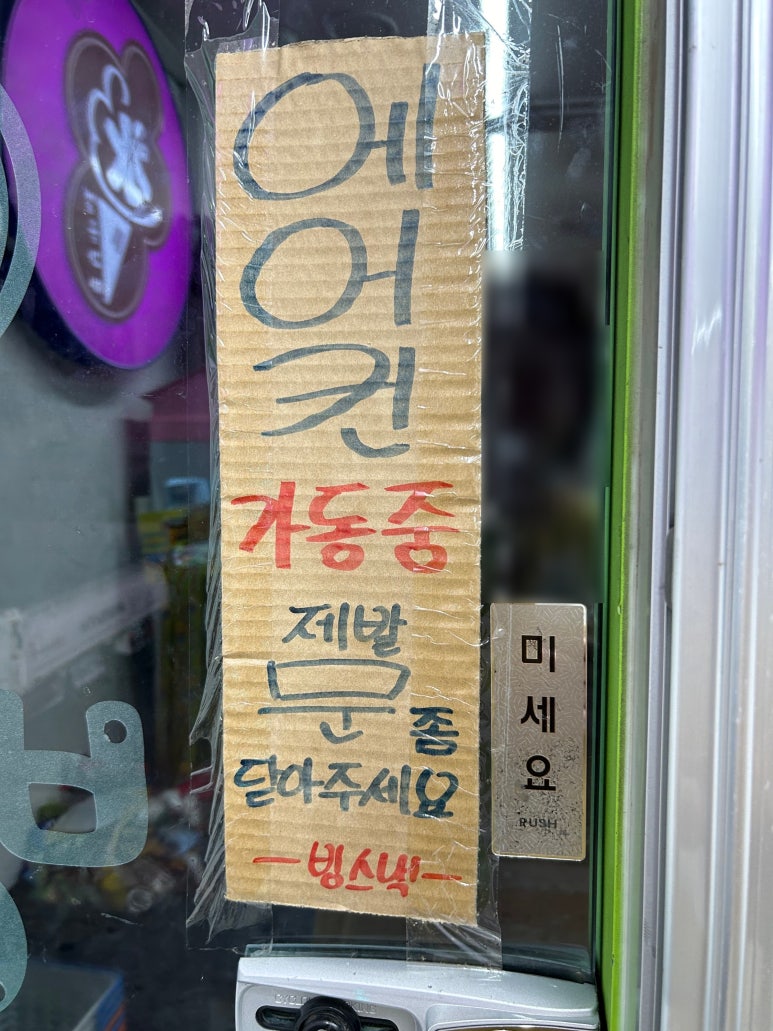 에
어
컨
가동중
제발
문 좀
닫아주세요
-빙스넥-
미
세
요
RUSH